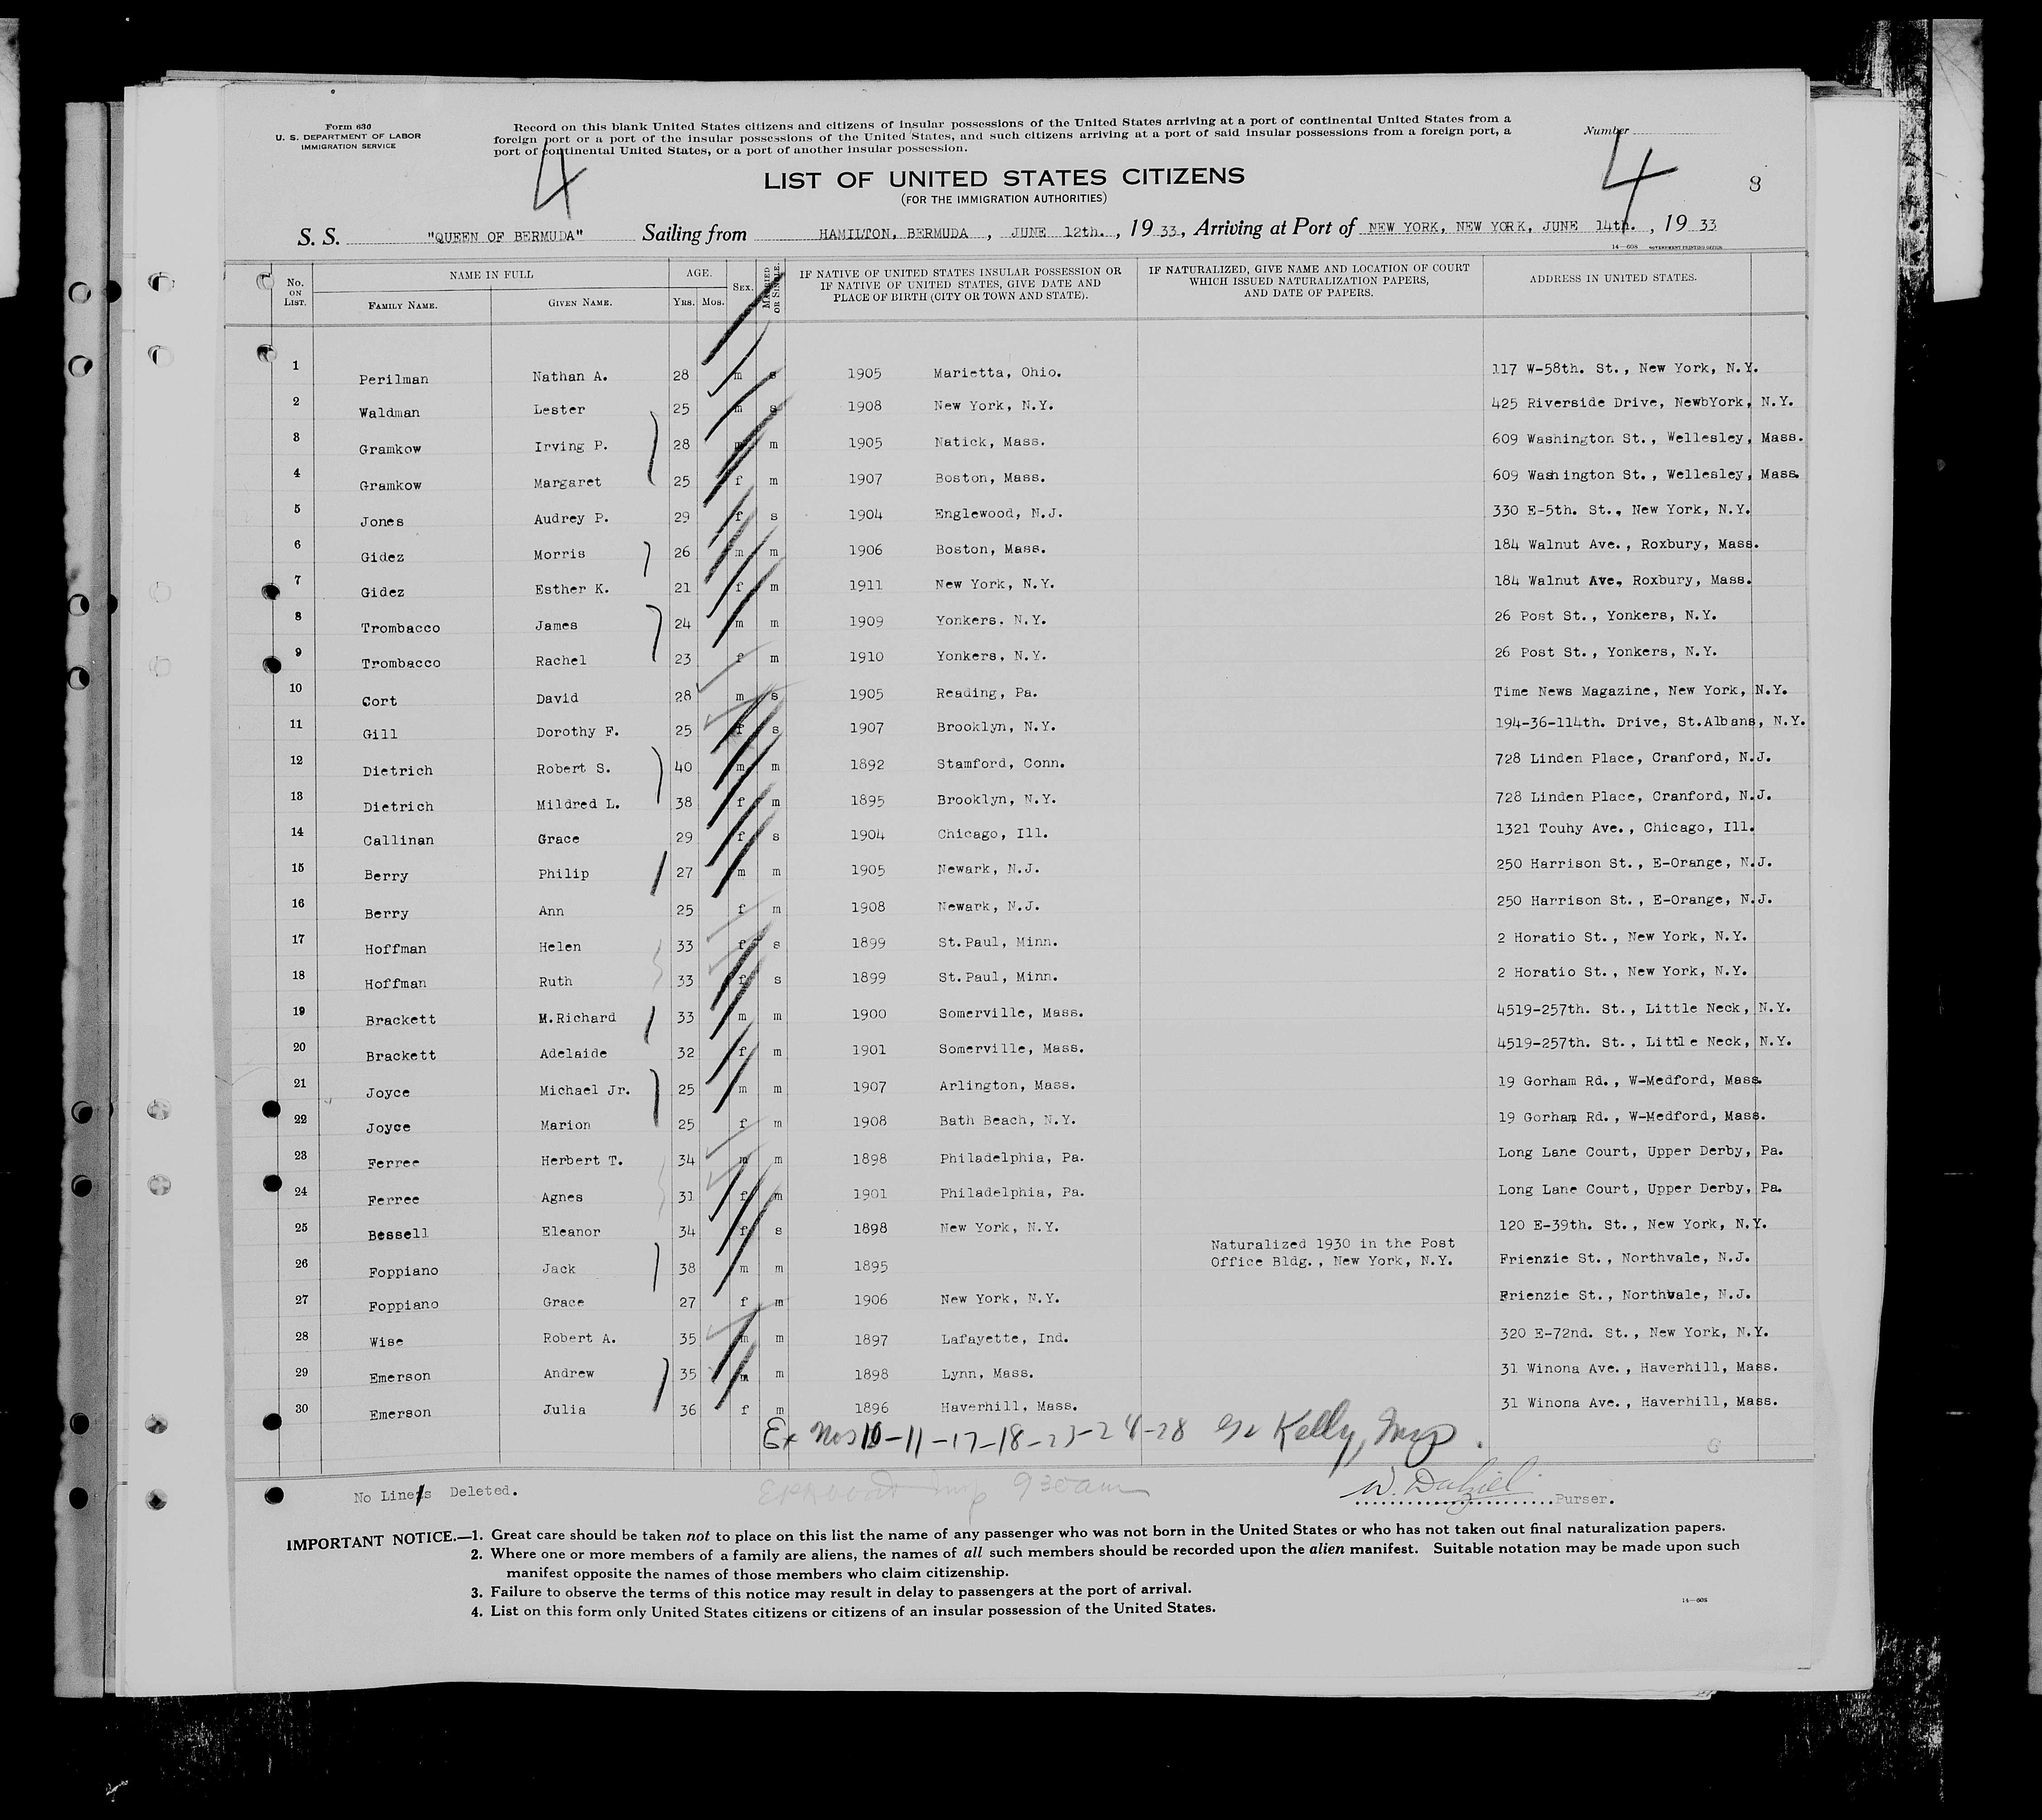 Form 630
U. S. DEPARTMENT OF LABOR
IMMIGRATION SERVICE
Record on this blank United States citizens and citizens of insular possessions of the United States arriving at a port of continental United States from a
foreign port or a port of the insular possessions of the United States, and such citizens arriving at a port of said insular possessions from a foreign port, a
port of continental United States, or a port of another insular possession.
Number
4
4
8
LIST OF UNITED STATES CITIZENS
(FOR THE IMMIGRATION AUTHORITIES)
S. S. "QUEEN OF BERMUDA" Sailing from HAMILTON, BERMUDA, JUNE 12th., 1933, Arriving at Port of NEW YORK, NEW YORK, JUNE 14th., 1933
14—608 GOVERNMENT PRINTING OFFICE
No. ON LIST. NAME IN FULL FAMILY NAME. GIVEN NAME. AGE. Yrs. Mos. SEX. MARRIED OR SINGLE. IF NATIVE OF UNITED STATES INSULAR POSSESSION OR IF NATIVE OF UNITED STATES, GIVE DATE AND PLACE OF BIRTH (CITY OR TOWN AND STATE). IF NATURALIZED, GIVE NAME AND LOCATION OF COURT WHICH ISSUED NATURALIZATION PAPERS, AND DATE OF PAPERS. ADDRESS IN UNITED STATES.
1 Perilman Nathan A. 28 m s 1905 Marietta, Ohio. 117 W-58th. St., New York, N.Y.
2 Waldman Lester 25 m s 1908 New York, N.Y. 425 Riverside Drive, NewbYork, N.Y.
3 Gramkow Irving P. 28 m m 1905 Natick, Mass. 609 Washington St., Wellesley, Mass.
4 Gramkow Margaret 25 f m 1907 Boston, Mass. 609 Washington St., Wellesley, Mass.
5 Jones Audrey P. 29 f s 1904 Englewood, N.J. 330 E-5th. St., New York, N.Y.
6 Gidez Morris 26 m m 1906 Boston, Mass. 184 Walnut Ave., Roxbury, Mass.
7 Gidez Esther K. 21 f m 1911 New York, N.Y. 184 Walnut Ave, Roxbury, Mass.
8 Trombacco James 24 m m 1909 Yonkers. N.Y. 26 Post St., Yonkers, N.Y.
9 Trombacco Rachel 23 f m 1910 Yonkers, N.Y. 26 Post St., Yonkers, N.Y.
10 Cort David 28 m s 1905 Reading, Pa. Time News Magazine, New York, N.Y.
11 Gill Dorothy F. 25 f s 1907 Brooklyn, N.Y. 194-36-114th. Drive, St.Albans, N.Y.
12 Dietrich Robert S. 40 m m 1892 Stamford, Conn. 728 Linden Place, Cranford, N.J.
13 Dietrich Mildred L. 38 f m 1895 Brooklyn, N.Y. 728 Linden Place, Cranford, N.J.
14 Callinan Grace 29 f s 1904 Chicago, Ill. 1321 Touhy Ave., Chicago, Ill.
15 Berry Philip 27 m m 1905 Newark, N.J. 250 Harrison St., E-Orange, N.J.
16 Berry Ann 25 f m 1908 Newark, N.J. 250 Harrison St., E-Orange, N.J.
17 Hoffman Helen 33 f s 1899 St.Paul, Minn. 2 Horatio St., New York, N.Y.
18 Hoffman Ruth 33 f s 1899 St.Paul, Minn. 2 Horatio St., New York, N.Y.
19 Brackett M.Richard 33 m m 1900 Somerville, Mass. 4519-257th. St., Little Neck, N.Y.
20 Brackett Adelaide 32 f m 1901 Somerville, Mass. 4519-257th. St., Little Neck, N.Y.
21 Joyce Michael Jr. 25 m m 1907 Arlington, Mass. 19 Gorham Rd., W-Medford, Mass.
22 Joyce Marion 25 f m 1908 Bath Beach, N.Y. 19 Gorham Rd., W-Medford, Mass.
23 Ferree Herbert T. 34 m m 1898 Philadelphia, Pa. Long Lane Court, Upper Derby, Pa.
24 Ferree Agnes 31 f m 1901 Philadelphia, Pa. Long Lane Court, Upper Derby, Pa.
25 Bessell Eleanor 34 f s 1898 New York, N.Y. 120 E-39th. St., New York, N.Y.
26 Foppiano Jack 38 m m 1895 Naturalized 1930 in the Post Office Bldg., New York, N.Y. Frienzie St., Northvale, N.J.
27 Foppiano Grace 27 f m 1906 New York, N.Y. Frienzie St., Northvale, N.J.
28 Wise Robert A. 35 m m 1897 Lafayette, Ind. 320 E-72nd. St., New York, N.Y.
29 Emerson Andrew 35 m m 1898 Lynn, Mass. 31 Winona Ave., Haverhill, Mass.
30 Emerson Julia 36 f m 1896 Haverhill, Mass. 31 Winona Ave., Haverhill, Mass.
Ex Nos 10-11-17-18-23-24-28 Kelly, Insp.
No Lines Deleted. Insp 930am W. Dalziel Purser.
IMPORTANT NOTICE.—1. Great care should be taken not to place on this list the name of any passenger who was not born in the United States or who has not taken out final naturalization papers.
2. Where one or more members of a family are aliens, the names of all such members should be recorded upon the alien manifest. Suitable notation may be made upon such
manifest opposite the names of those members who claim citizenship.
3. Failure to observe the terms of this notice may result in delay to passengers at the port of arrival.
4. List on this form only United States citizens or citizens of an insular possession of the United States.
14—608